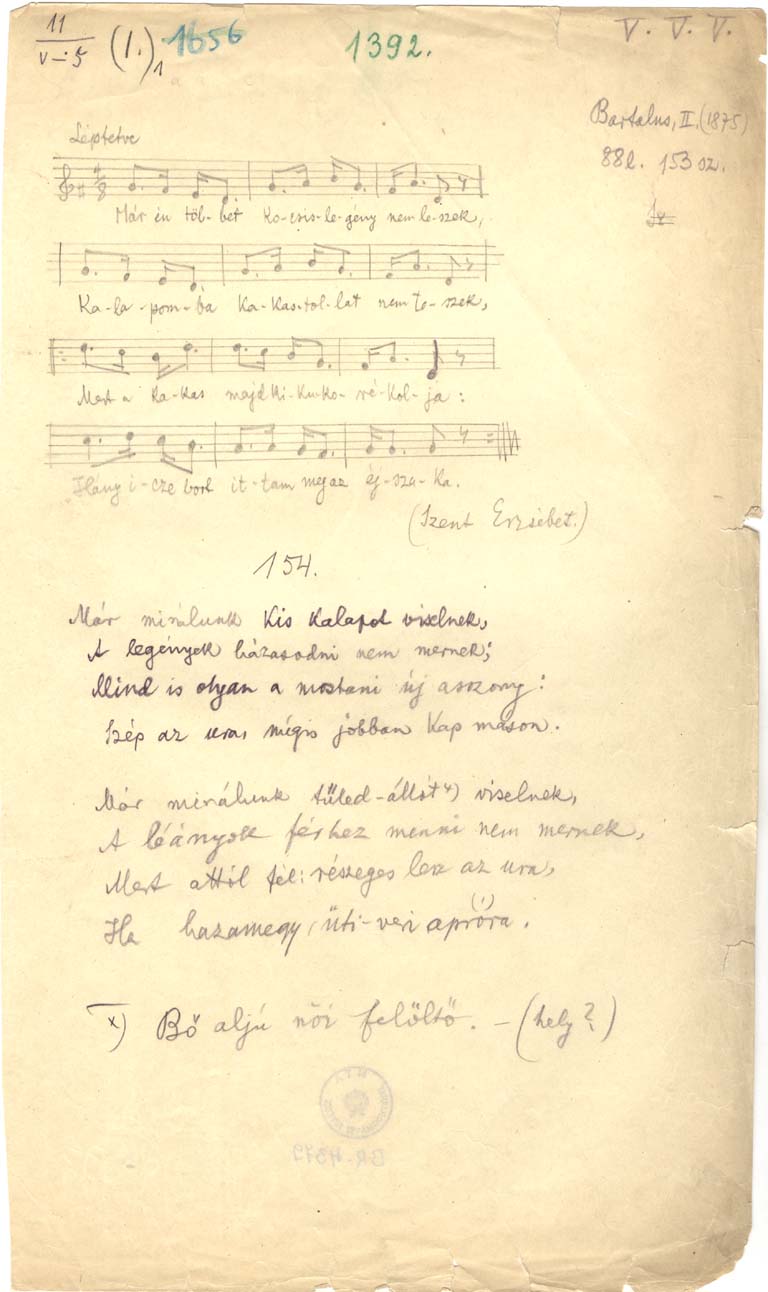 11
V–5 (1.)1 1656 1392. V. V. V.
Bartalus, II. (1875)
88l. 153 sz.
Léptetve
Már én töb-bet ko-csis-le-gény nem le-szek,
Ka-la-pom-ba ka-kas-tol-lat nem te-szek,
Mert a ka-kas majd ki-ku-ko-ré-kol-ja:
Hány i-cze bort it-tam meg az éj-sza-ka.
(Szent Erzsébet.)
154.
Már minálunk kis kalapot viselnek,
A legények házasodni nem mernek;
Mind is olyan a mostani új asszony:
Szép az ura, mégis jobban kap máson.
Már minálunk tűled-állót x) viselnek,
A léányok férhez menni nem mernek,
Mert attól fél: részeges lesz az ura,
Ha hazamegy, üti-veri apróra. (!)
x) Bő aljú női felöltő. – (hely?)
BR-4379